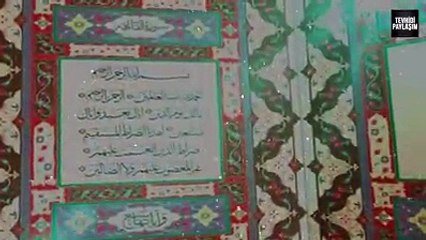 TEVHİDİ
PAYLAŞIM
بسم الله الرحمن الرحيم
الحمد لله رب العالمين الرحمن الرحيم
مالك يوم الدين اياك نعبد واياك
نستعين اهدنا الصراط المستقيم
صراط الذين انعمت عليهم
غير المغضوب عليهم ولا الضالين